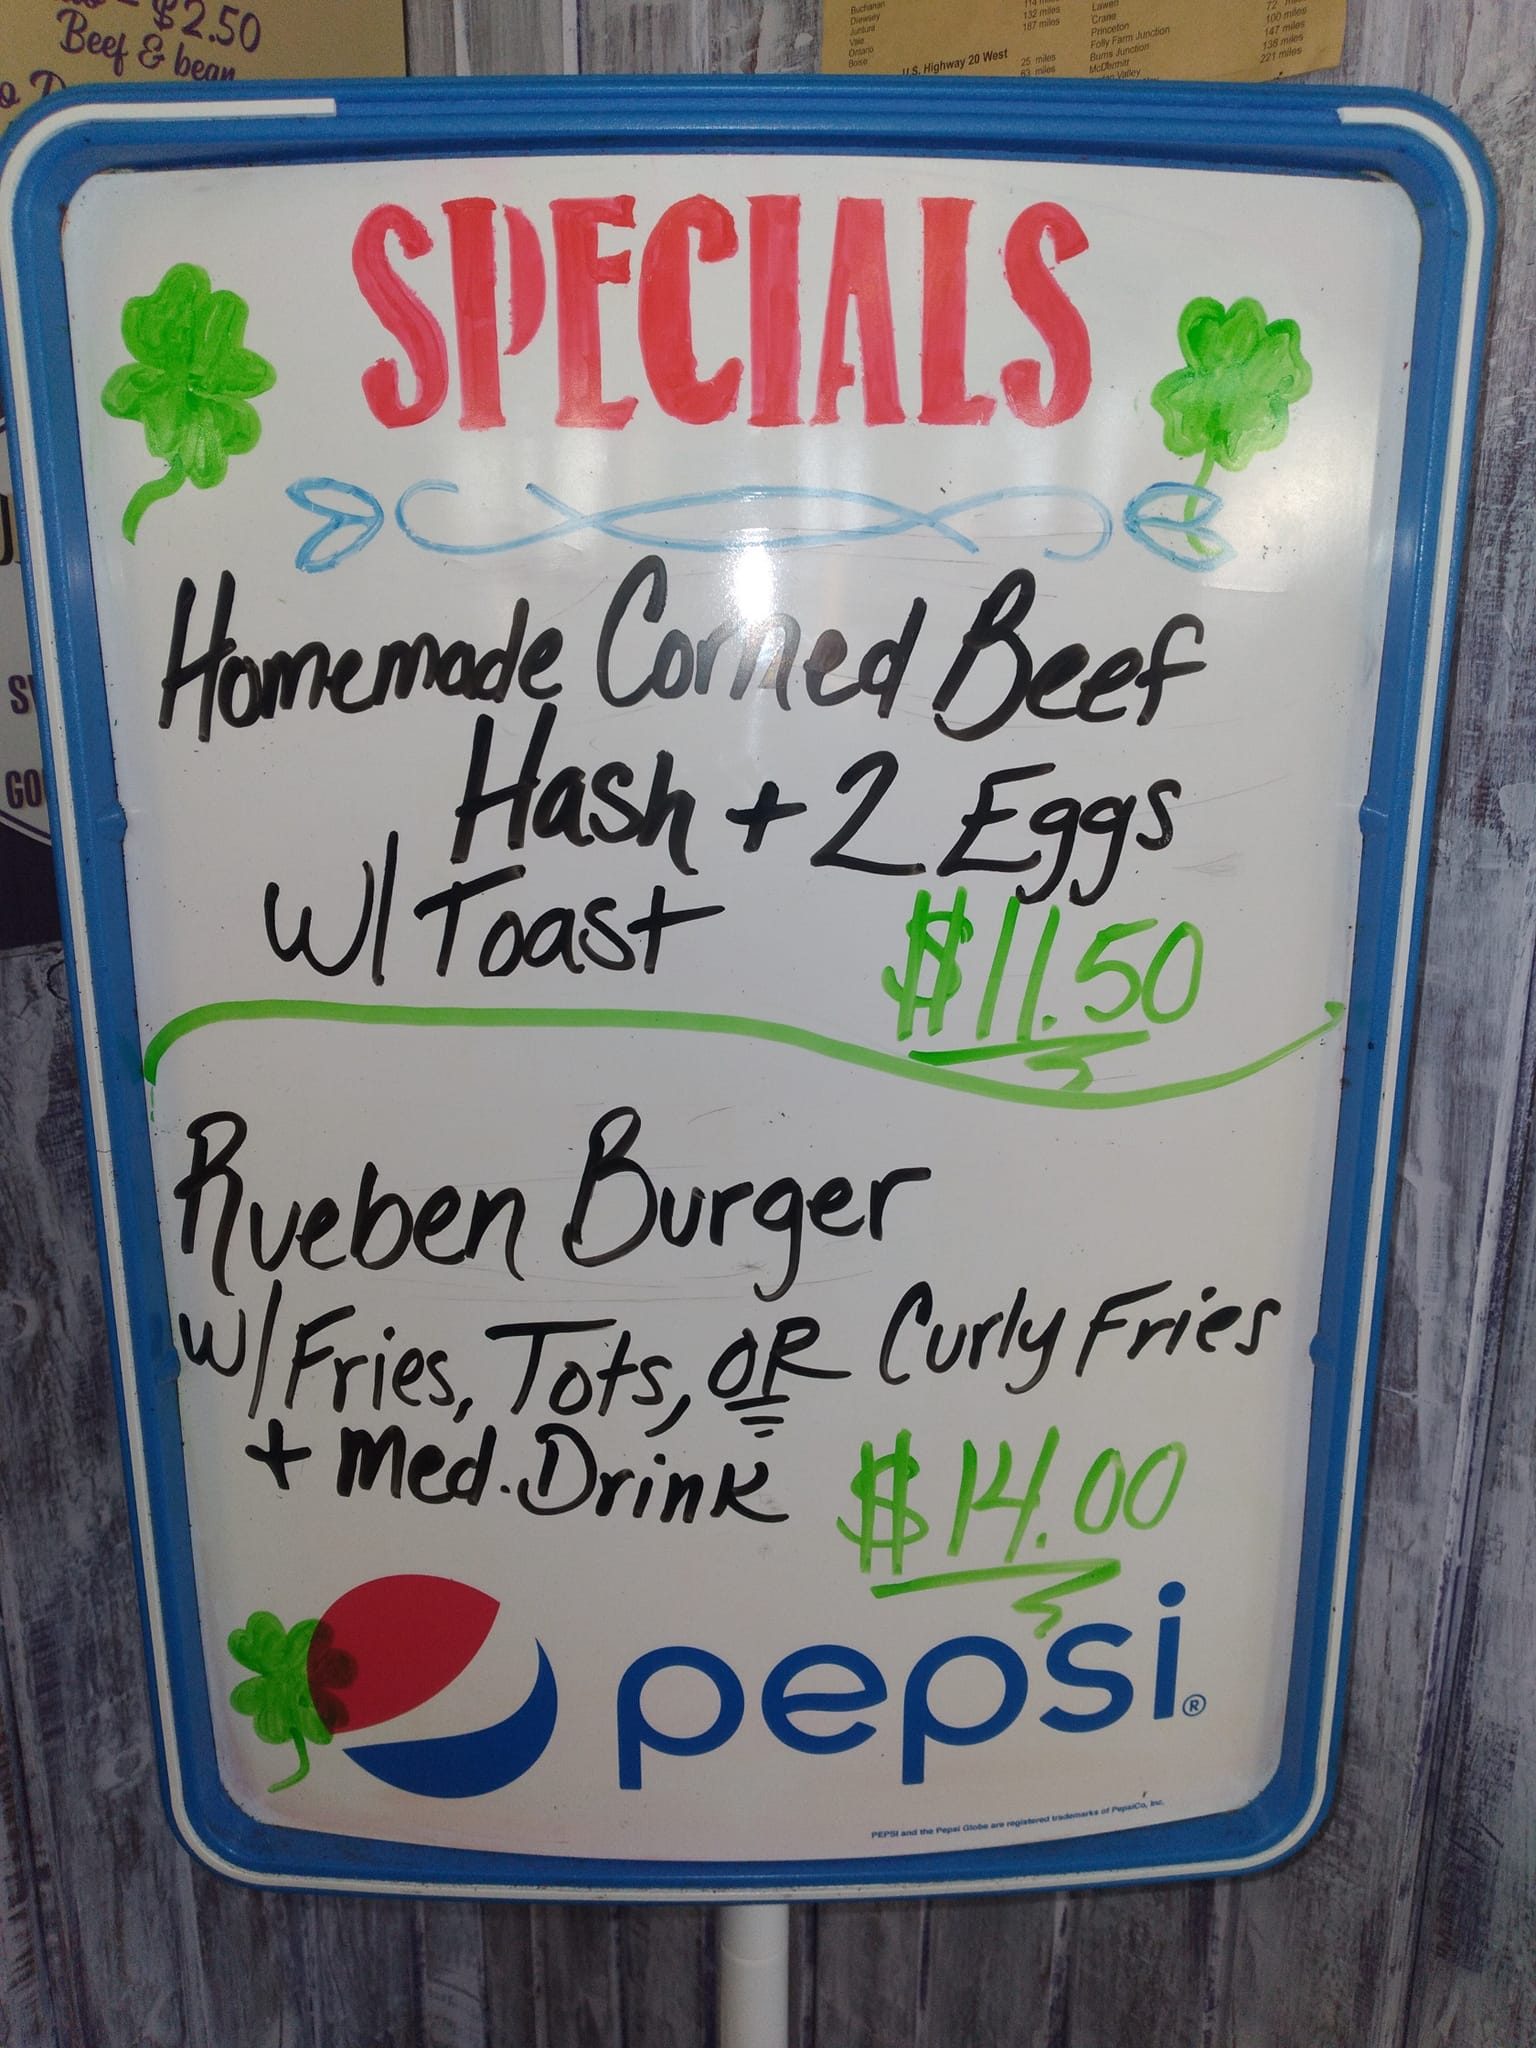 $2.50
Beef & bean
Buchanan
Drewsey 132 miles
Juntura 187 miles
Vale
Ontario
Boise
U.S. Highway 20 West
25 miles
63 miles
Lawen 72
Crane 100 miles
Princeton 147 miles
Folly Farm Junction 138 miles
Burns Junction 221 miles
McDermitt
Valley
SPECIALS
Homemade Corned Beef
Hash + 2 Eggs
W/ Toast $11.50
Rueben Burger
w/ Fries, Tots, OR Curly Fries
+ Med. Drink $14.00
pepsi®
PEPSI and the Pepsi Globe are registered trademarks of PepsiCo, Inc.